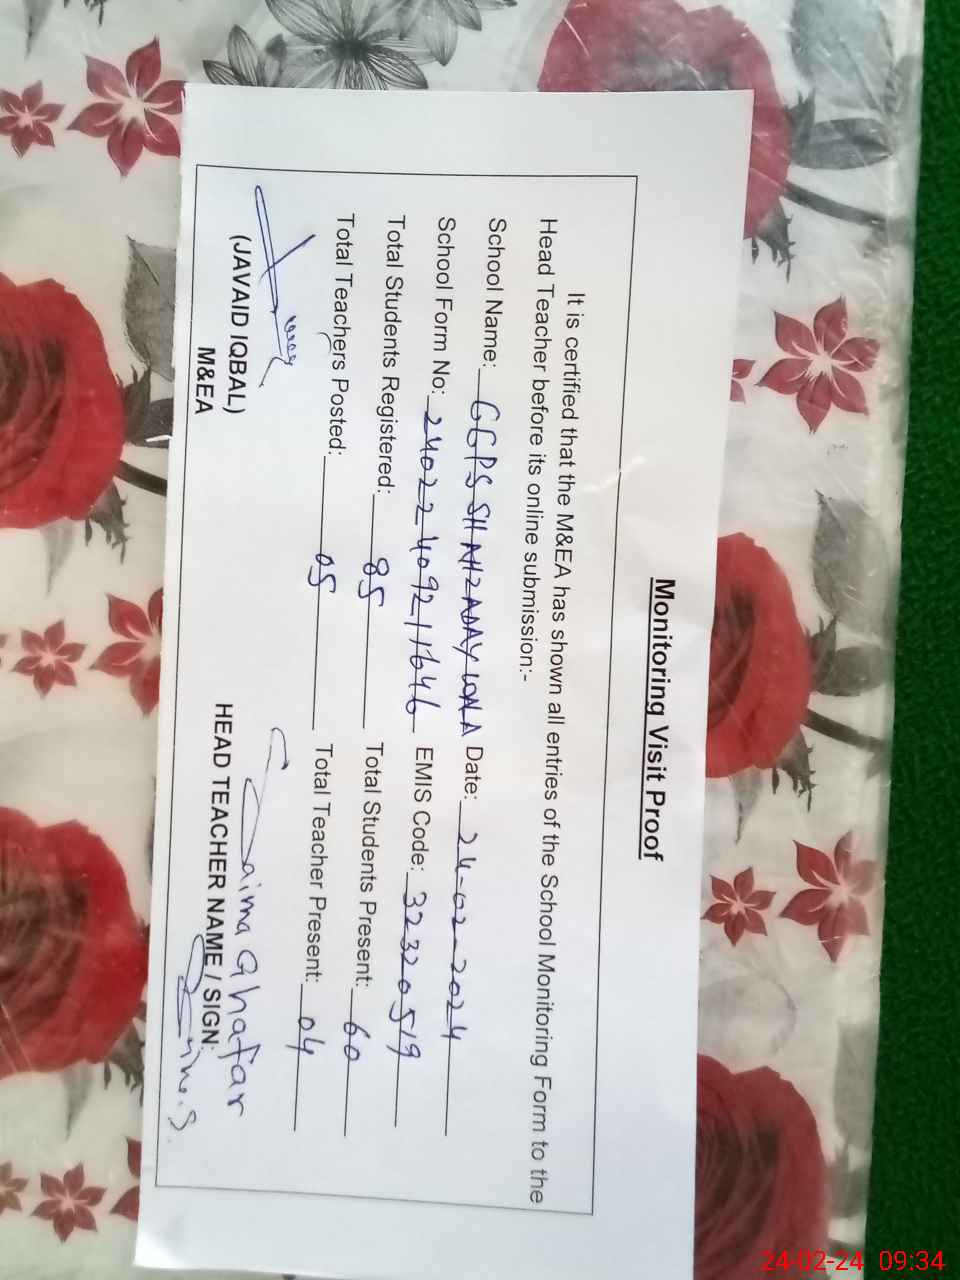 Monitoring Visit Proof
It is certified that the M&EA has shown all entries of the School Monitoring Form to the
Head Teacher before its online submission:-
School Name: GGPS SHAHZADAY WALA Date: 24-02-2024
School Form No: 24022409211646 EMIS Code: 32320519
Total Students Registered: 85 Total Students Present: 60
Total Teachers Posted: 05 Total Teacher Present: 04
Saima Ghafar
(JAVAID IQBAL)
M&EA
HEAD TEACHER NAME / SIGN:
24-02-24 09:34